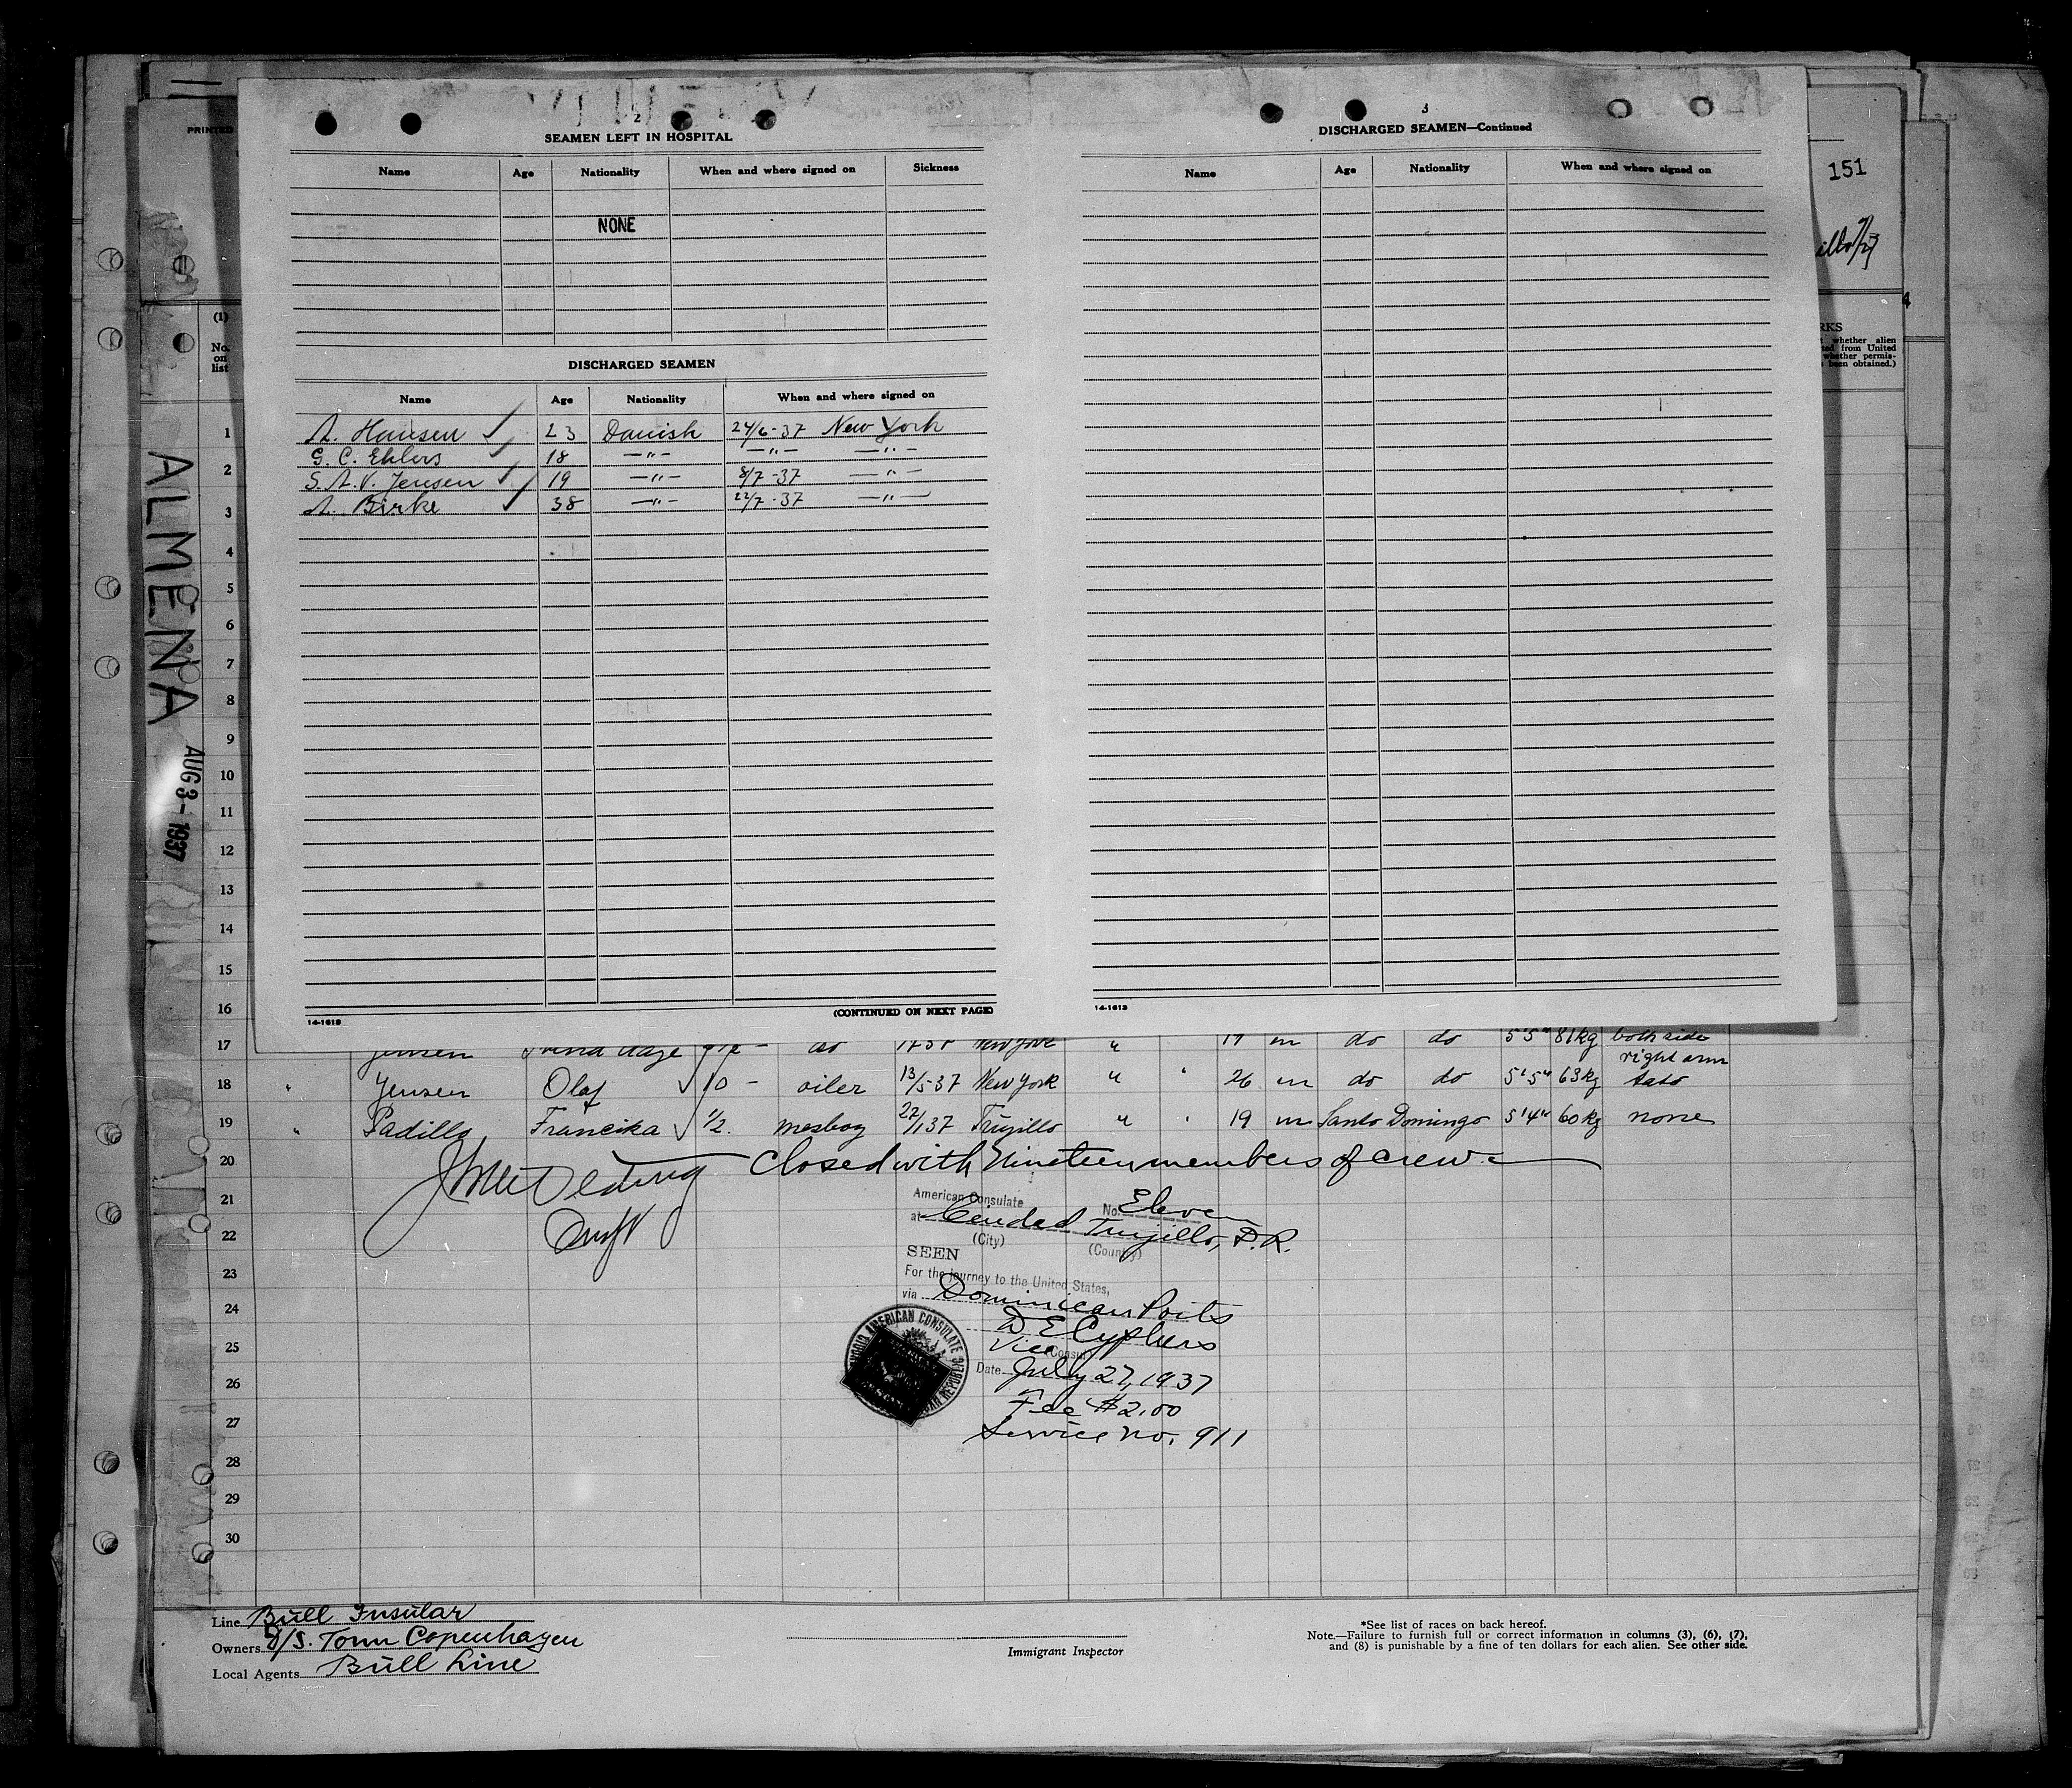 2
SEAMEN LEFT IN HOSPITAL
Name Age Nationality When and where signed on Sickness
NONE
DISCHARGED SEAMEN
Name Age Nationality When and where signed on
A. Hansen 23 Danish 24/6-37 New York
G. C. Ehlers 18 —"— —"— —"—
S. A. V. Jensen 19 —"— 8/7-37 —"—
A. Birke 38 —"— 22/7-37 —"—
(CONTINUED ON NEXT PAGE)
14-1613
3
DISCHARGED SEAMEN—Continued
Name Age Nationality When and where signed on
14-1613
PRINTED
151
illo/
4
RKS
whether alien
ted from United
whether permis-
been obtained.)
(1)
No.
on
list
ALMENA
AUG 3-1937
1
2
3
4
5
6
7
8
9
10
11
12
13
14
15
16
17 Jensen do New York " 19 m do do 5'5" 81kg both side
right arm
18 " Jensen Olaf 10 - oiler 13/5-37 New York " " 26 m do do 5'5" 63kg tato
19 " Padillo Francika 1/2 mesboy 27/1 37 Trujillo " " 19 m Santo Domingo 5'4" 60kg none
20 Closed with Nineteen members of crew.
21
22
23
24
25
26
27
28
29
30
American Consulate No. Eleven
at Ciudad Trujillo, D.R.
(City) (Country)
SEEN
For the journey to the United States,
via Dominican Ports
D E Cyphers
Vice (Consul)
Date July 27, 1937
Fee $2.00
Service No. 911
AMERICAN CONSULATE
Line Bull Insular
Owners D/S. Torm Copenhagen
Local Agents Bull Line
Immigrant Inspector
*See list of races on back hereof.
Note.—Failure to furnish full or correct information in columns (3), (6), (7),
and (8) is punishable by a fine of ten dollars for each alien. See other side.